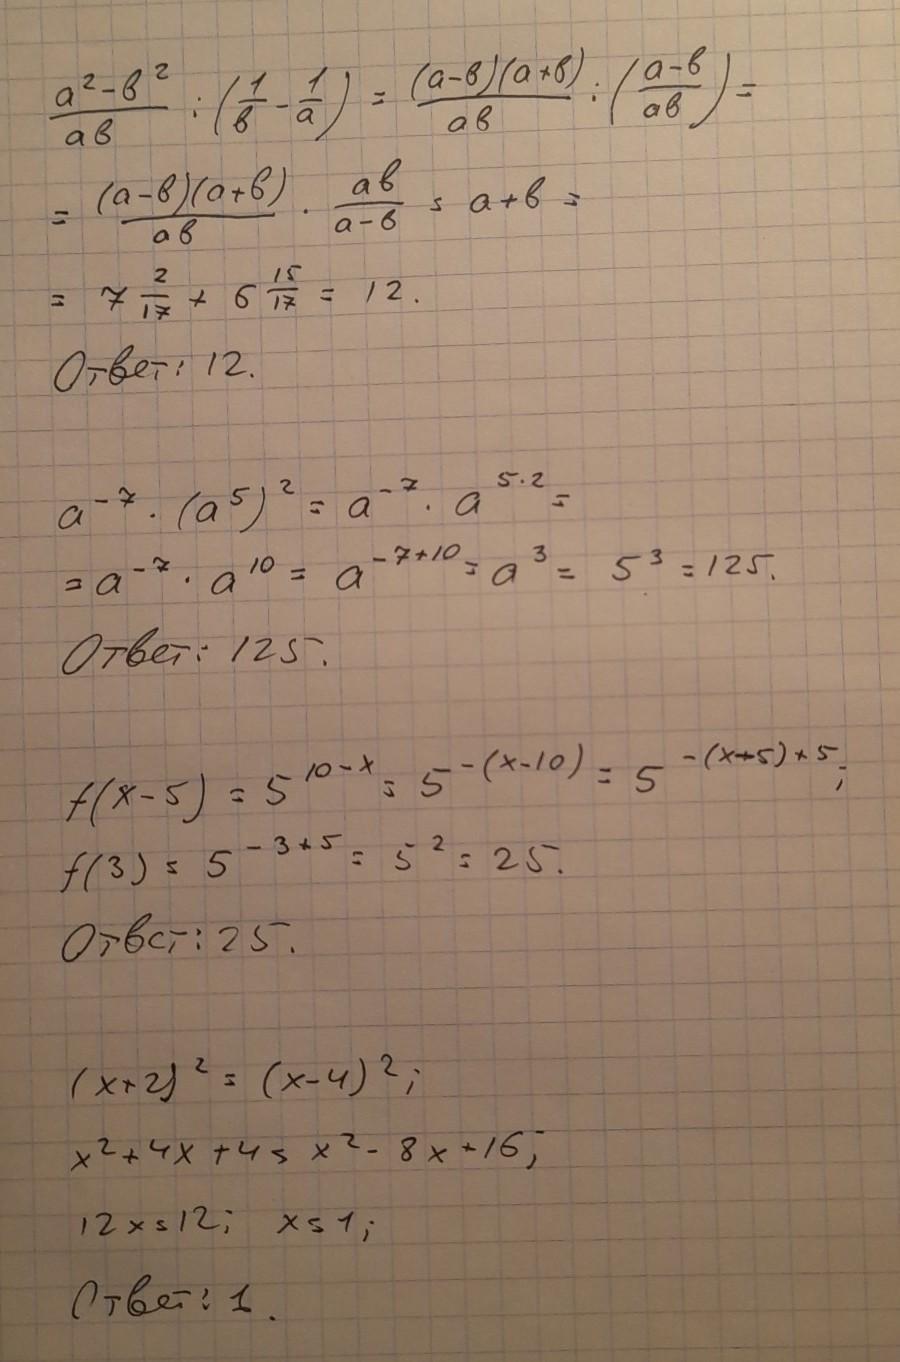 (a² - b²)/(ab) : (1/b - 1/a) = ((a-b)(a+b))/(ab) : ((a-b)/(ab)) =
= ((a-b)(a+b))/(ab) · (ab)/(a-b) = a+b =
= 7 2/17 + 6 15/17 = 12.
Ответ: 12.
a⁻⁷ · (a⁵)² = a⁻⁷ · a^(5·2) =
= a⁻⁷ · a¹⁰ = a^(-7+10) = a³ = 5³ = 125.
Ответ: 125.
f(x-5) = 5^(10-x) = 5^(-(x-10)) = 5^(-(x+5)+5);
f(3) = 5^(-3+5) = 5² = 25.
Ответ: 25.
(x+2)² = (x-4)²;
x²+4x+4 = x²-8x+16;
12x=12; x=1;
Ответ: 1.